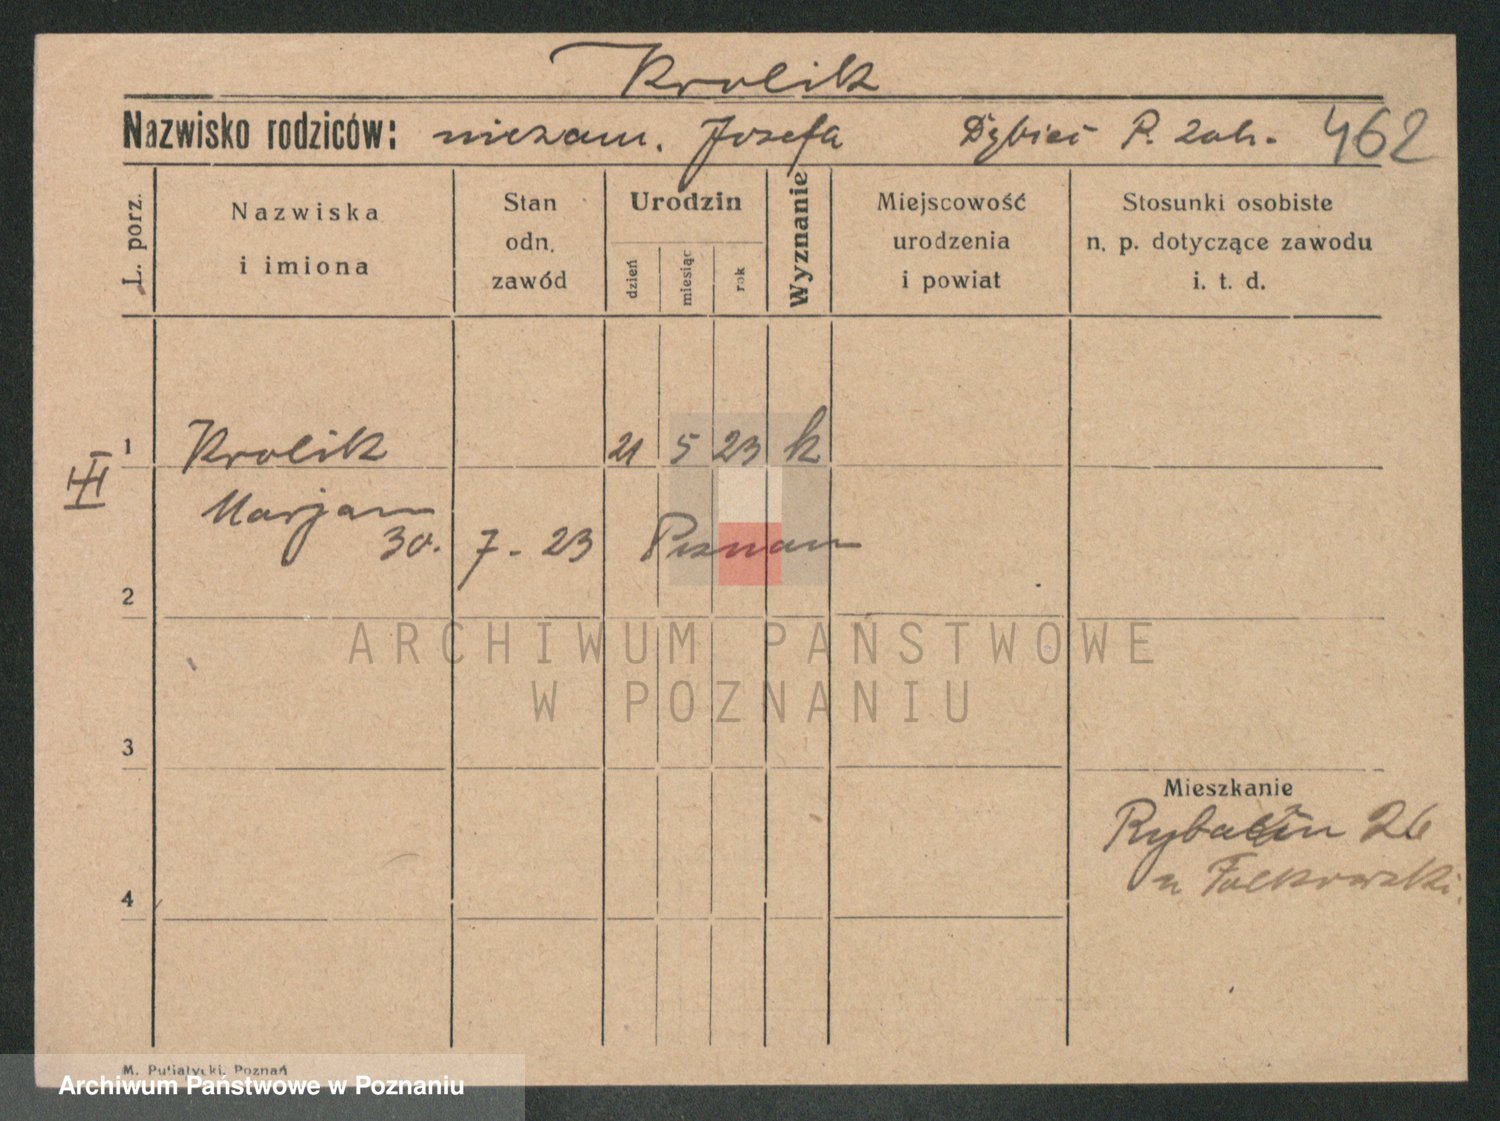 Krolik
Nazwisko rodziców: niezam. Josefa P. 462
L. porz.
Nazwiska i imiona
Stan odn. zawód
Urodzin
dzień
miesiąc
rok
Wyznanie
Miejscowość urodzenia i powiat
Stosunki osobiste n. p. dotyczące zawodu i. t. d.
1 Krolik 21 5 23 k
III
Marjan
30. 7 - 23 Poznan
2
ARCHIWUM PAŃSTWOWE
W POZNANIU
3
Mieszkanie
26
4
M. Putiatycki, Poznań
Archiwum Państwowe w Poznaniu